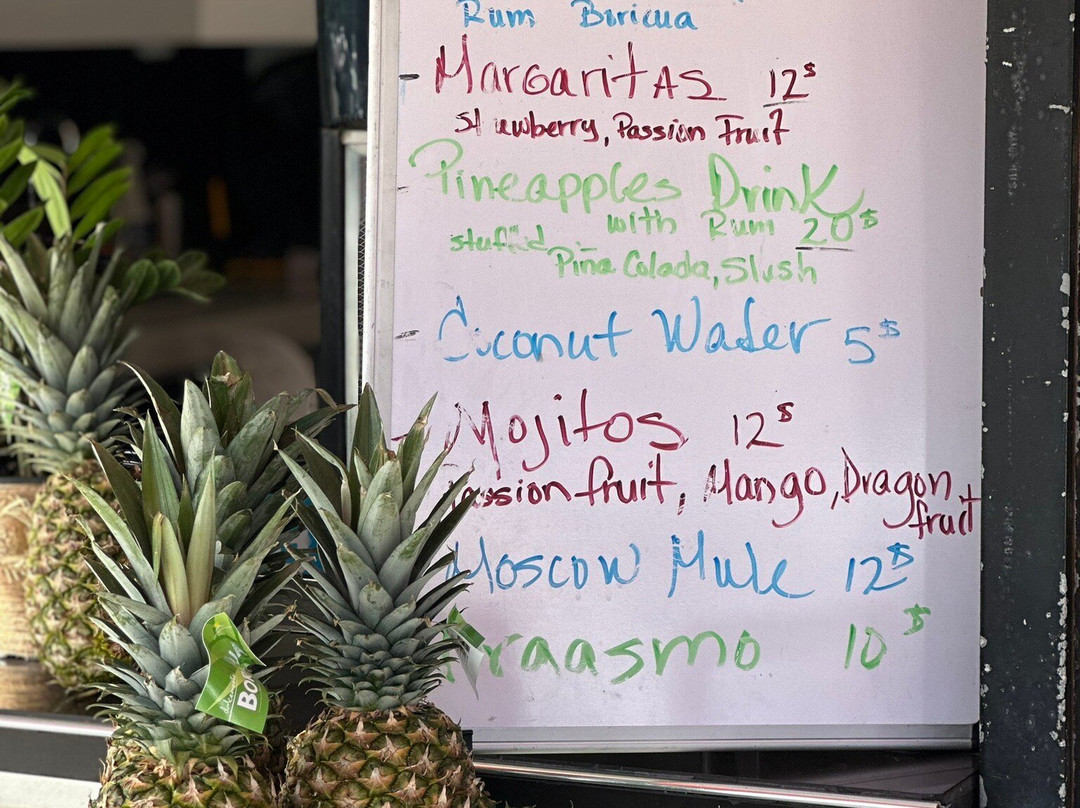 Rum Boricua
Margaritas 12$
Strawberry, Passion Fruit
Pineapples Drink
with Rum 20$
stuffid
Piña Colada, Slush
Coconut Water 5$
Mojitos 12$
Passion fruit, Mango, Dragon
fruit
Moscow Mule 12$
raasmo 10$